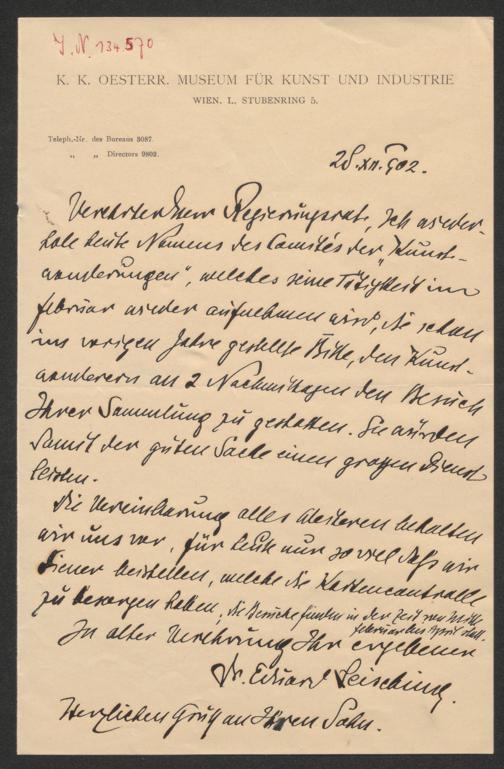 J. N. 134.570
K. K. OESTERR. MUSEUM FÜR KUNST UND INDUSTRIE
WIEN. I., STUBENRING 5.
Teleph.-Nr. des Bureaus 3087.
„ „ Directors 9802.
28.XII.902.
Verehrter Herr Regierungsrat, ich wieder-
hole heute Namens des Comités der „Kunst-
wanderungen", welches seine Tätigkeit im
Februar wieder aufnehmen wird, die schon
im vorigen Jahre gestellte Bitte, den Kunst-
wanderern an 2 Nachmittagen den Besuch
Ihrer Sammlung zu gestatten. Sie würden
damit der guten Sache einen großen Dienst
leisten.
Die Vereinbarung alles Weiteren behalten
wir uns vor, für heute nur so viel daß wir
Diener beistellen, welche die Kartencontrolle
zu besorgen haben, die Besuche finden in der Zeit von Mitte
Februar bis April statt.
In alter Verehrung Ihr ergebener
Dr. Eduard Leisching.
Herzlichen Gruß an Ihren Sohn.